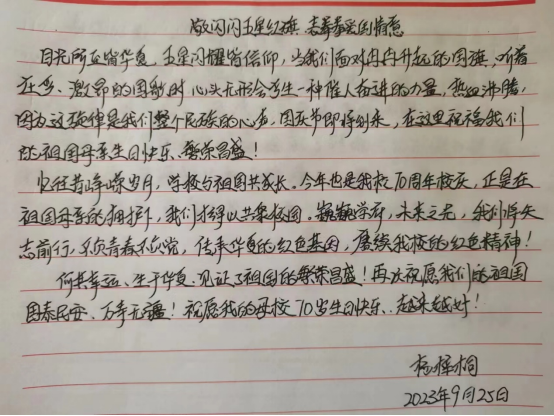 敬闪闪五星红旗、表拳拳爱国情意
目光所至皆华夏，五星闪耀皆信仰，当我们面对冉冉升起的国旗，听着
庄严、激昂的国歌时，心头无形会产生一种催人奋进的力量，热血沸腾，
因为这旋律是我们整个民族的心声，国庆节即将到来，在这里祝福我们
的祖国母亲生日快乐、繁荣昌盛！
忆往昔峥嵘岁月，学校与祖国共成长。今年也是我校70周年校庆，正是在
祖国母亲的拥护下，我们才得以共聚校园。巍巍学府，未来之光，我们将矢
志前行，不负青春不负党，传承华夏的红色基因，赓续我校的红色精神！
何其幸运、生于华夏、见证了祖国的繁荣昌盛！再次祝愿我们的祖国
国泰民安、万寿无疆！祝愿我的母校70岁生日快乐、越来越好！
杨梓桐
2023年9月25日